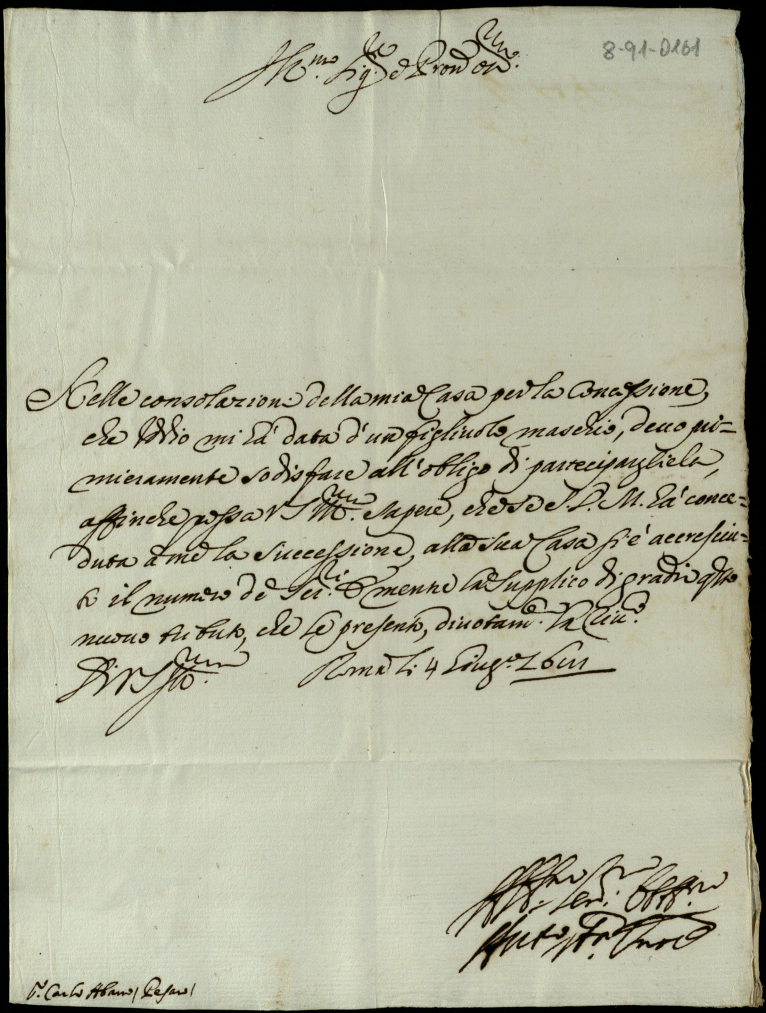 8-91-0161
Ill.mo Sig.re e Pron Oss.mo
Nelle consolazioni della mia Casa per la Concessione,
che Iddio mi hà data d'un figliuolo maschio, devo pri=
mieramente sodisfare all'obligo di parteciparglielo,
affinche possa V.S. Ill.ma sapere, che se S.D.M. hà conce=
duta a me la Successione, alla sua Casa si è accresciu=
to il numero de Ser.ri E mentre la supplico di gradir q.sto
nuovo tributo, che le presento, divotam.te la riv.co
Di V.S. Ill.ma Roma li 4 Giug.o
Ser.
S. Carlo Pesaro